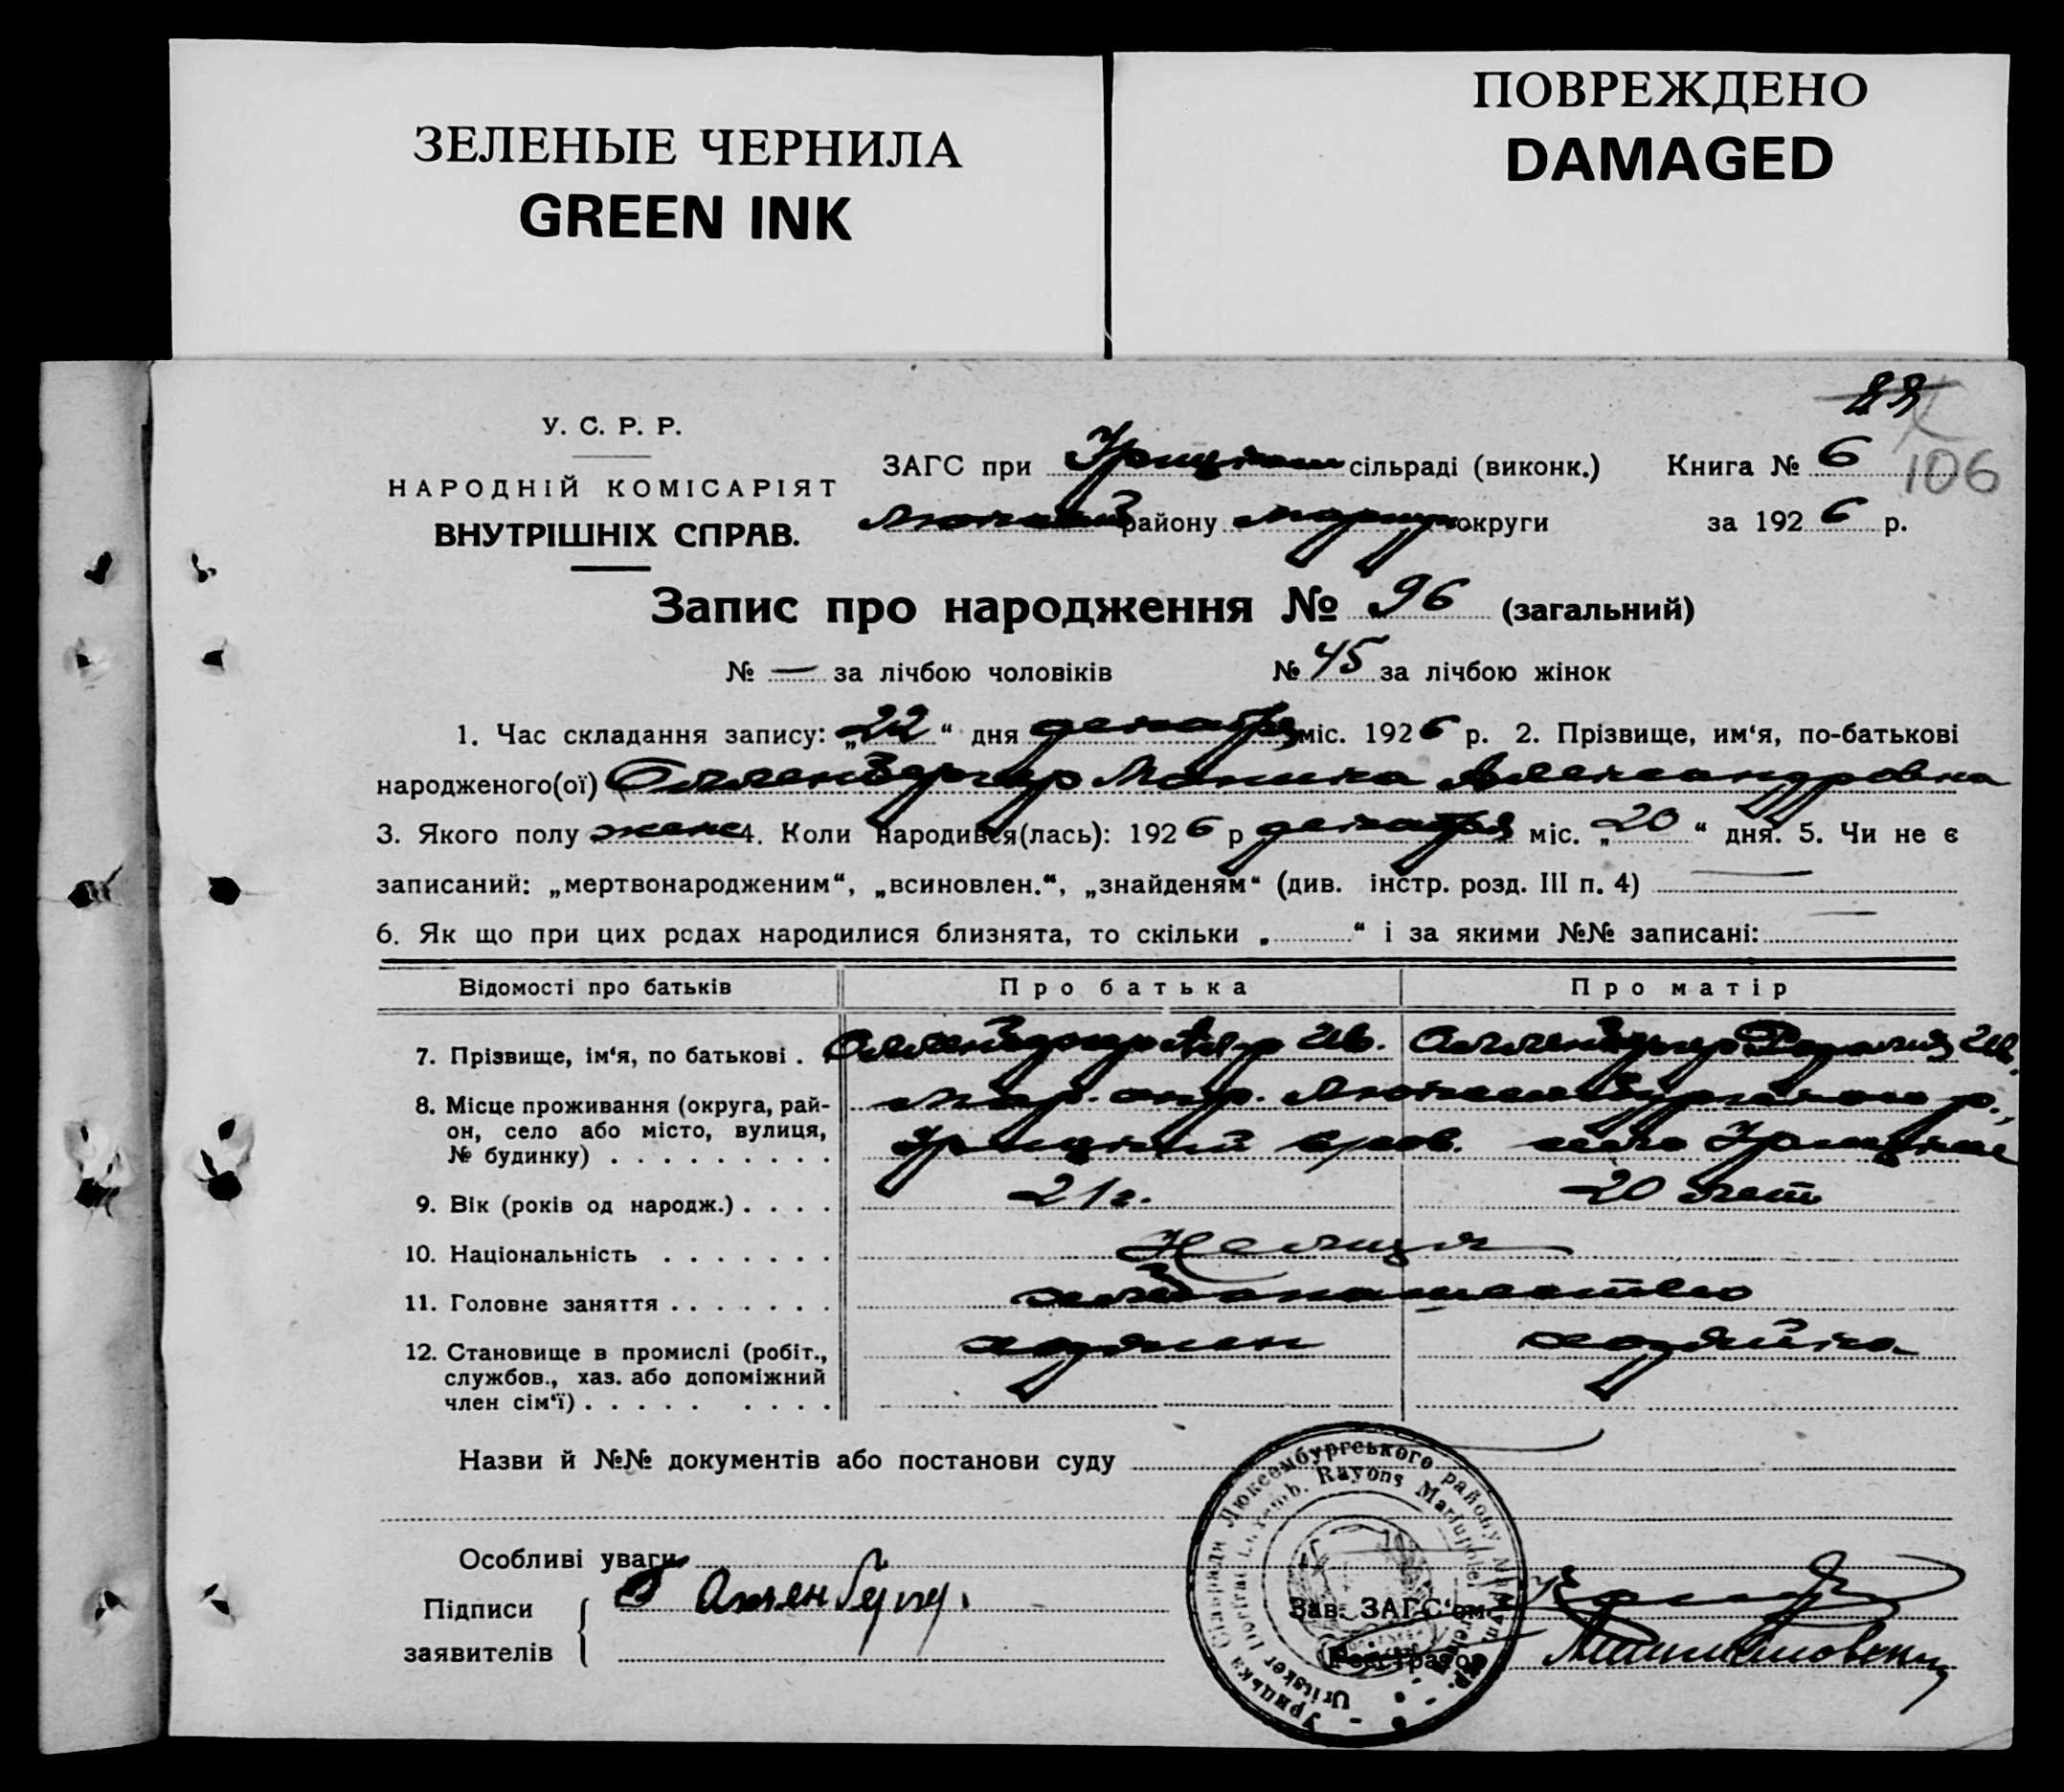 ЗЕЛЕНЫЕ ЧЕРНИЛА
GREEN INK
ПОВРЕЖДЕНО
DAMAGED
У. С. Р. Р.
НАРОДНІЙ КОМІСАРІЯТ
ВНУТРІШНІХ СПРАВ.
ЗАГС при Урицком сільраді (виконк.) Книга № 6
106
району округи за 1926 р.
Запис про народження № 96 (загальний)
№ — за лічбою чоловіків № 45 за лічбою жінок
1. Час складання запису: „22“ дня декабря міс. 1926 р. 2. Прізвище, им‘я, по-батькові
народженого(ої) Олленбергер Моника Александровна
3. Якого полу женс 4. Коли народився(лась): 1926 р декабря міс. „20“ дня. 5. Чи не є
записаний: „мертвонародженим“, „всиновлен.“, „знайденям“ (див. інстр. розд. III п. 4) —
6. Як що при цих родах народилися близнята, то скільки „ “ і за якими №№ записані: —
Відомості про батьків Про батька Про матір
7. Прізвище, ім‘я, по батькові . Олленбергер Ал-р Ив. Олленбергер
8. Місце проживання (округа, рай- Мар. окр. Люксембургского р.,
он, село або місто, вулиця, Урицкий село Урицкое
№ будинку) . . . . . . . . .
9. Вік (років од народж.) . . . . 21 г. 20 лет
10. Національність . . . . . . . Немцы
11. Головне заняття . . . . . . . хлебопашество
12. Становище в промислі (робіт., хозяин хозяйка
службов., хаз. або допоміжний
член сім‘ї) . . . . . . . . .
Назви й №№ документів або постанови суду
Особливі уваги
Підписи
заявителів
Зав. ЗАГС‘ом
Реєстратор
Урицька Сільрада Люксембургського району
Uritsker Dorfrat Luxemb. Rayons Mariupoler Kreises